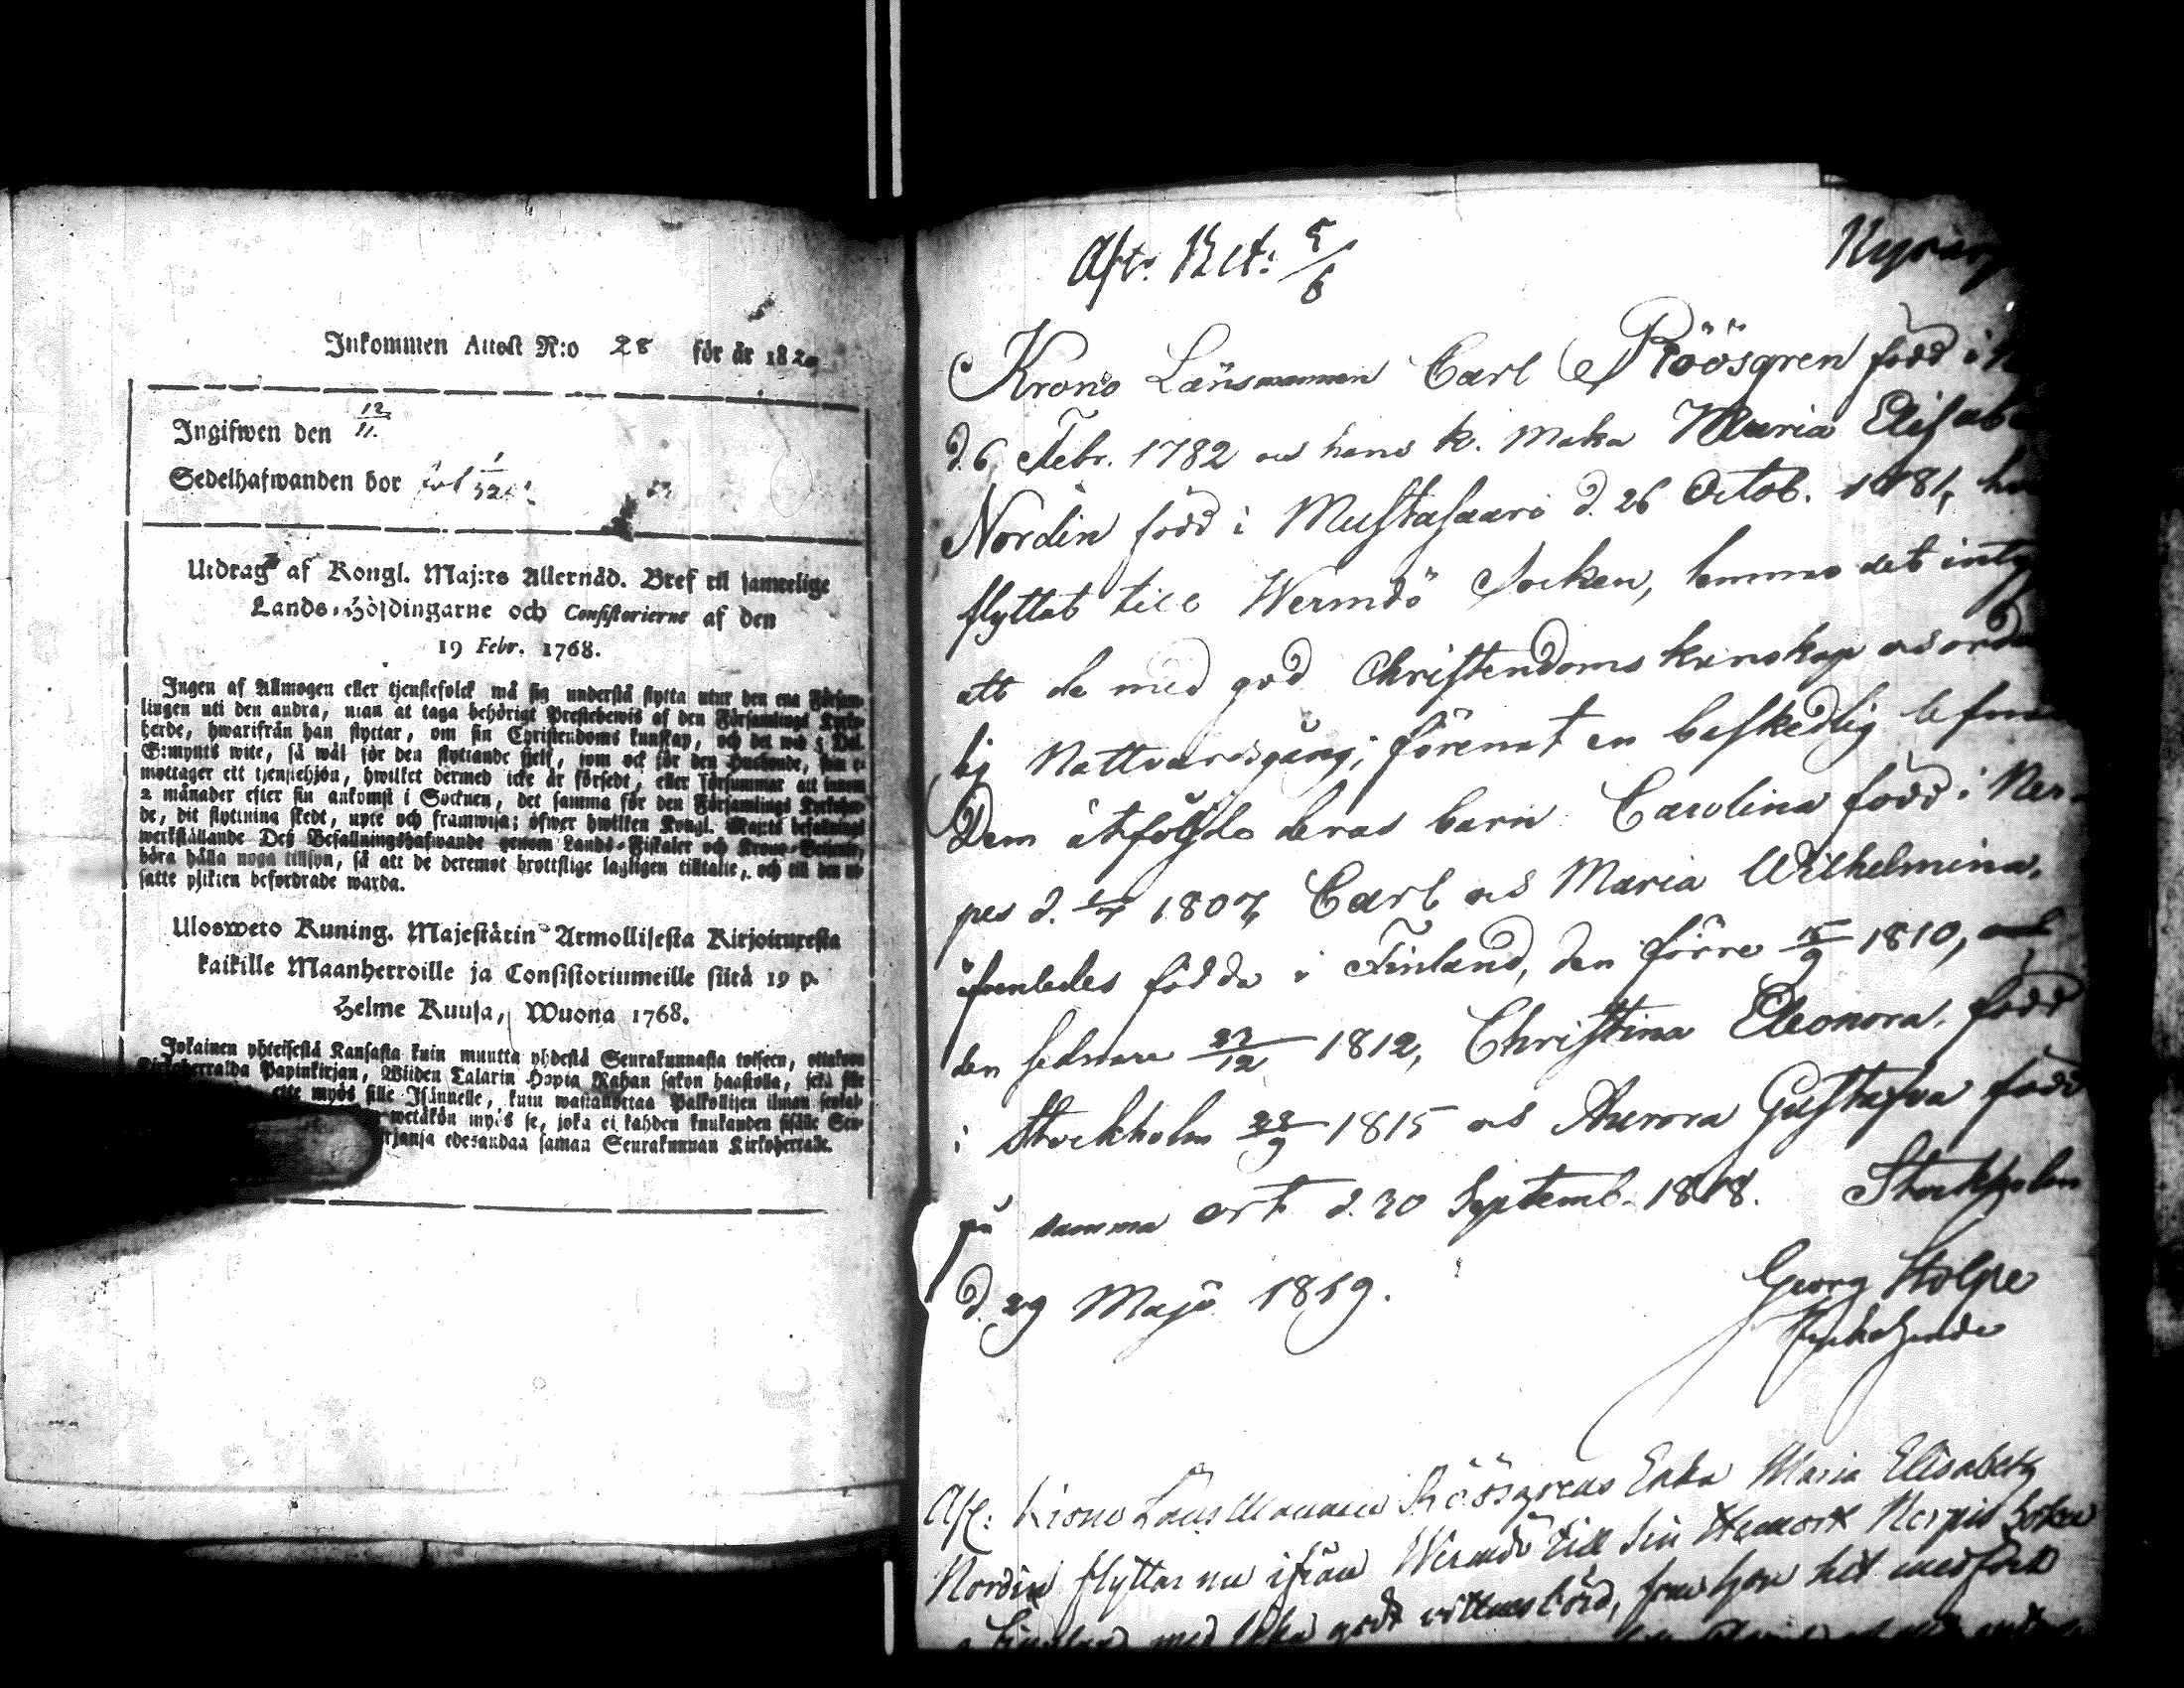 Inkommen Attest N:o 28 för år 182
Ingifwen den 12/11.
Sedelhafwanden bor
Utdrag af Kongl. Maj:ts Allernåd. Bref till samtelige
Lands-Höfdingarne och Consistorierne af den
19 Febr. 1768.
Ingen af Allmogen eller tjenstefolck må sig understå flytta utur den ena Försam-
lingen uti den andra, utan at taga behörigt Prestebewis af den Församlings Kyrko-
herde, hwarifrån han flyttar, om sin Christendoms kunskap, och det wid 5 Dal.
S:mynts wite, så wäl för den flyttande sjelf, som ock för den Husbonde, som e-
mottager ett tjenstehjon, hwilket dermed icke är försedt, eller försummar att innom
2 månader efter sin ankomst i Socknen, det samma för den Församlings Kyrkoher-
de, dit flyttning skedt, upte och framwisa; öfwer hwilken Kongl. Maj:ts befallnings
werkställande Deß Befallningshafwande genom Lands-Fiskaler och Krono-Betjente,
böra hålla noga tillsyn, så att de deremot brottslige lagligen tilltalte, och till den ut-
satte plikten befordrade warda.
Ulosweto Kuning. Majestätin Armollisesta Kirjoituxesta
kaikille Maanherroille ja Consistoriumeille siitä 19 p.
Helme Kuusa, Wuona 1768.
Jokainen yhteisestä Kansasta kuin muutta yhdestä Seurakunnasta toiseen, ottakoon
Kirkoherralda Papinkirjan, Wiiden Talarin Hopia Rahan sakon haastolla, sekä sille
ette myös sille Isännelle, kuin wastanottaa Palkollisen ilman senkal-
wetäkön myös se, joka ei kahden kuukauden sisälle Seu-
rjansa edesandaa saman Seurakunnan Kirkoherralle.
Aft: Nt: 5/6
Krono Länsmannen Carl Röösgren född i
d. 6 Febr. 1782 och hans k. maka Maria Elisabe
Nordin född i Mustasaari d. 26 Octob. 1781,
flyttat till Wermdö Socken, lemnas det inty
att de med god Christendoms kunskap och orde
lig Nattvardsgång, förenat en beskedlig lefnad
Dem åtföljde deras barn Carolina född i Ner-
pes d. 1807, Carl och Maria Wilhelmina,
äfvenledes födda i Finland, den förre /9 1810, och
den sednare 22/12 1812, Christina Eleonora, född
i Stockholm /9 1815 och Aurora Gustafva född
på samma ort d. 30 Septemb. 1818. Stockholm
d. 29 Maji 1819.
Georg Stolpe
Kyrkoherde
Afl: Krono Länsmannen Röösgrens Enka Maria Elisabeth
Nordin flyttar nu ifrån Wermdö till sin Hemort Nerpis Soken
med lika godt vittnesbörd, som hon hit medfört